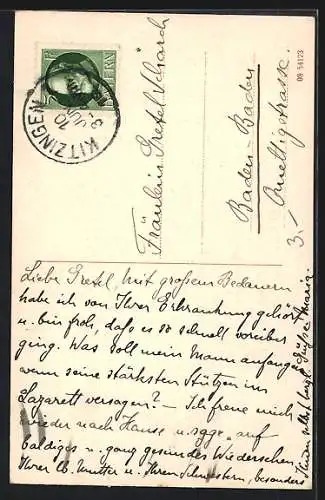 BAYERN
KITZINGEN
8 JUN
10
09 54123
Fräulein Gretel Scharch
Baden-Baden
3.-
Liebe Gretel, mit großem Bedauern
habe ich von Ihrer Erkrankung gehört
u. bin froh, daß es so schnell vorüber
ging. Was soll mein Mann anfangen
wenn seine stärksten Stützen im
Lazarett versagen? - Ich freue mich
wieder nach Hause u. sage „auf
baldiges u. ganz gesundes Wiedersehen"
Ihrer lb. Mutter u. Ihren Schwestern, besonders
Ihnen selbst herzl. Grüße